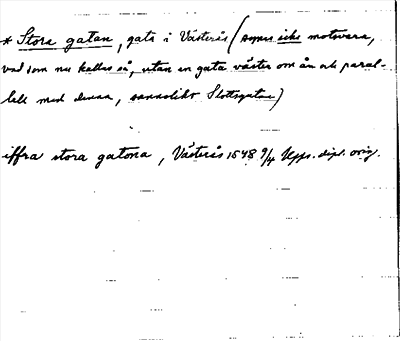 * Stora gatan, gata i Västerås (synes icke motsvara,
vad som nu kallas så, utan en gata väster om ån och paral-
lell med denna, sannolikt Slottsgatan)
iffra stora gatona, Västerås 1548 9/4 Upps. dipl. orig.